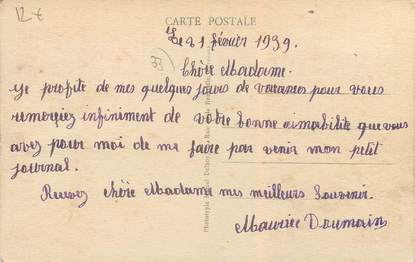 12€
CARTE POSTALE
Le 21 février 1939.
33
Chère Madame.
Je profite de mes quelques jours de vacances pour vous
remerciez infiniment de votre bonne aimabilité que vous
avez pour moi de me faire par venir mon petit
journal.
Recevez chère Madame mes meilleurs Souvenir.
Maurice Doumain